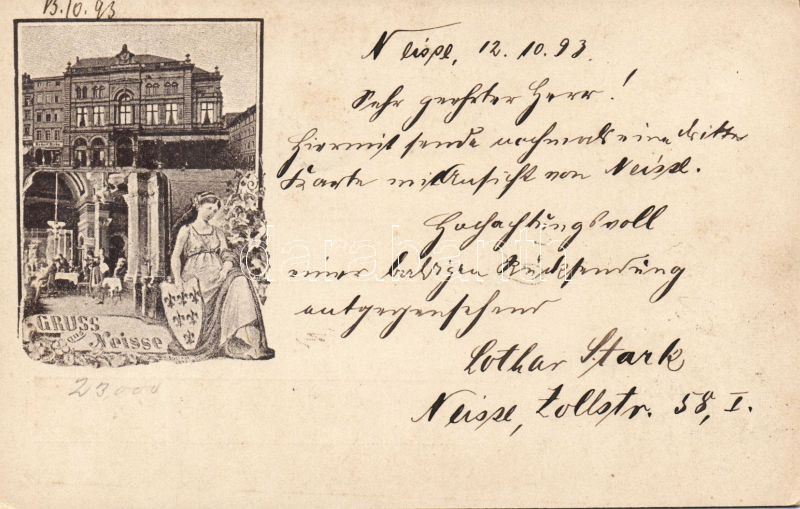 13.10.93
Neisse, 12. 10. 93.
Sehr geehrter Herr!
Hiermit sende nochmals eine dritte
Karte mit Ansicht von Neisse.
Hochachtungsvoll
einer baldigen Rücksendung
entgegensehend
Lothar Stark
Neisse, Zollstr. 58, I.
GRUSS
aus
Neisse
23,000
darabanth